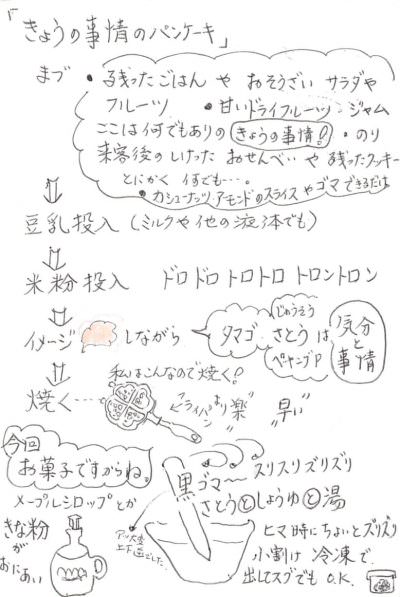 「きょうの事情のパンケーキ」
まづ・残ったごはん や おそうざい サラダや
フルーツ ・甘いドライフルーツ・ジャム
ここは何でもありの きょうの事情! ・のり
来客後のしけった おせんべい や 残ったクッキー
とにかく 何でも…。
・カシューナッツ・アーモンドのスライスやゴマできるだけ
豆乳投入(ミルクや他の液体でも)
米粉投入 ドロドロトロトロ トロントロン
イメージ しながら
タマゴ
じゅうそう
さとう は
ベーキングP
気分と事情
焼く…
私はこんなので焼く!
フライパンより
"楽" "早い"
今回
お菓子ですからね。
メープルシロップとか
きな粉
が
おにあい
黒ゴマ〜 スリスリズリズリ
さとうとしょうゆと湯
アッ大変
上下逆でした
ヒマ時にちょいとズリズリ
小割け 冷凍で
出してスグでもO.K.